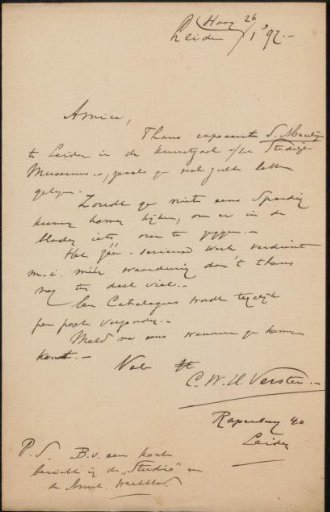 Leiden 26/1 '97.-
Amice,
Thans exposeert S. Moulijn
te Leiden in de kunstzaal v/h Stedelijk
Museum.-, zooals ge wel zult hebben
gelezen.-
Zoudt ge niet eens spoedig
kunnen komen kijken, om er in de
bladen iets over te zeggen.-
Het zéér serieuse werk verdient
m.i. méér waardeering dan 't thans
nog ten deel viel.-
Een Catalogus wordt tegelijk
per post verzonden.-
Meld me eens wanneer ge komen
kunt.-
C. W. H. Verster.-
Rapenburg 40
Leiden
P.S. B.v. een kort
bericht in de "Studio" en
de Amst. Weekblad